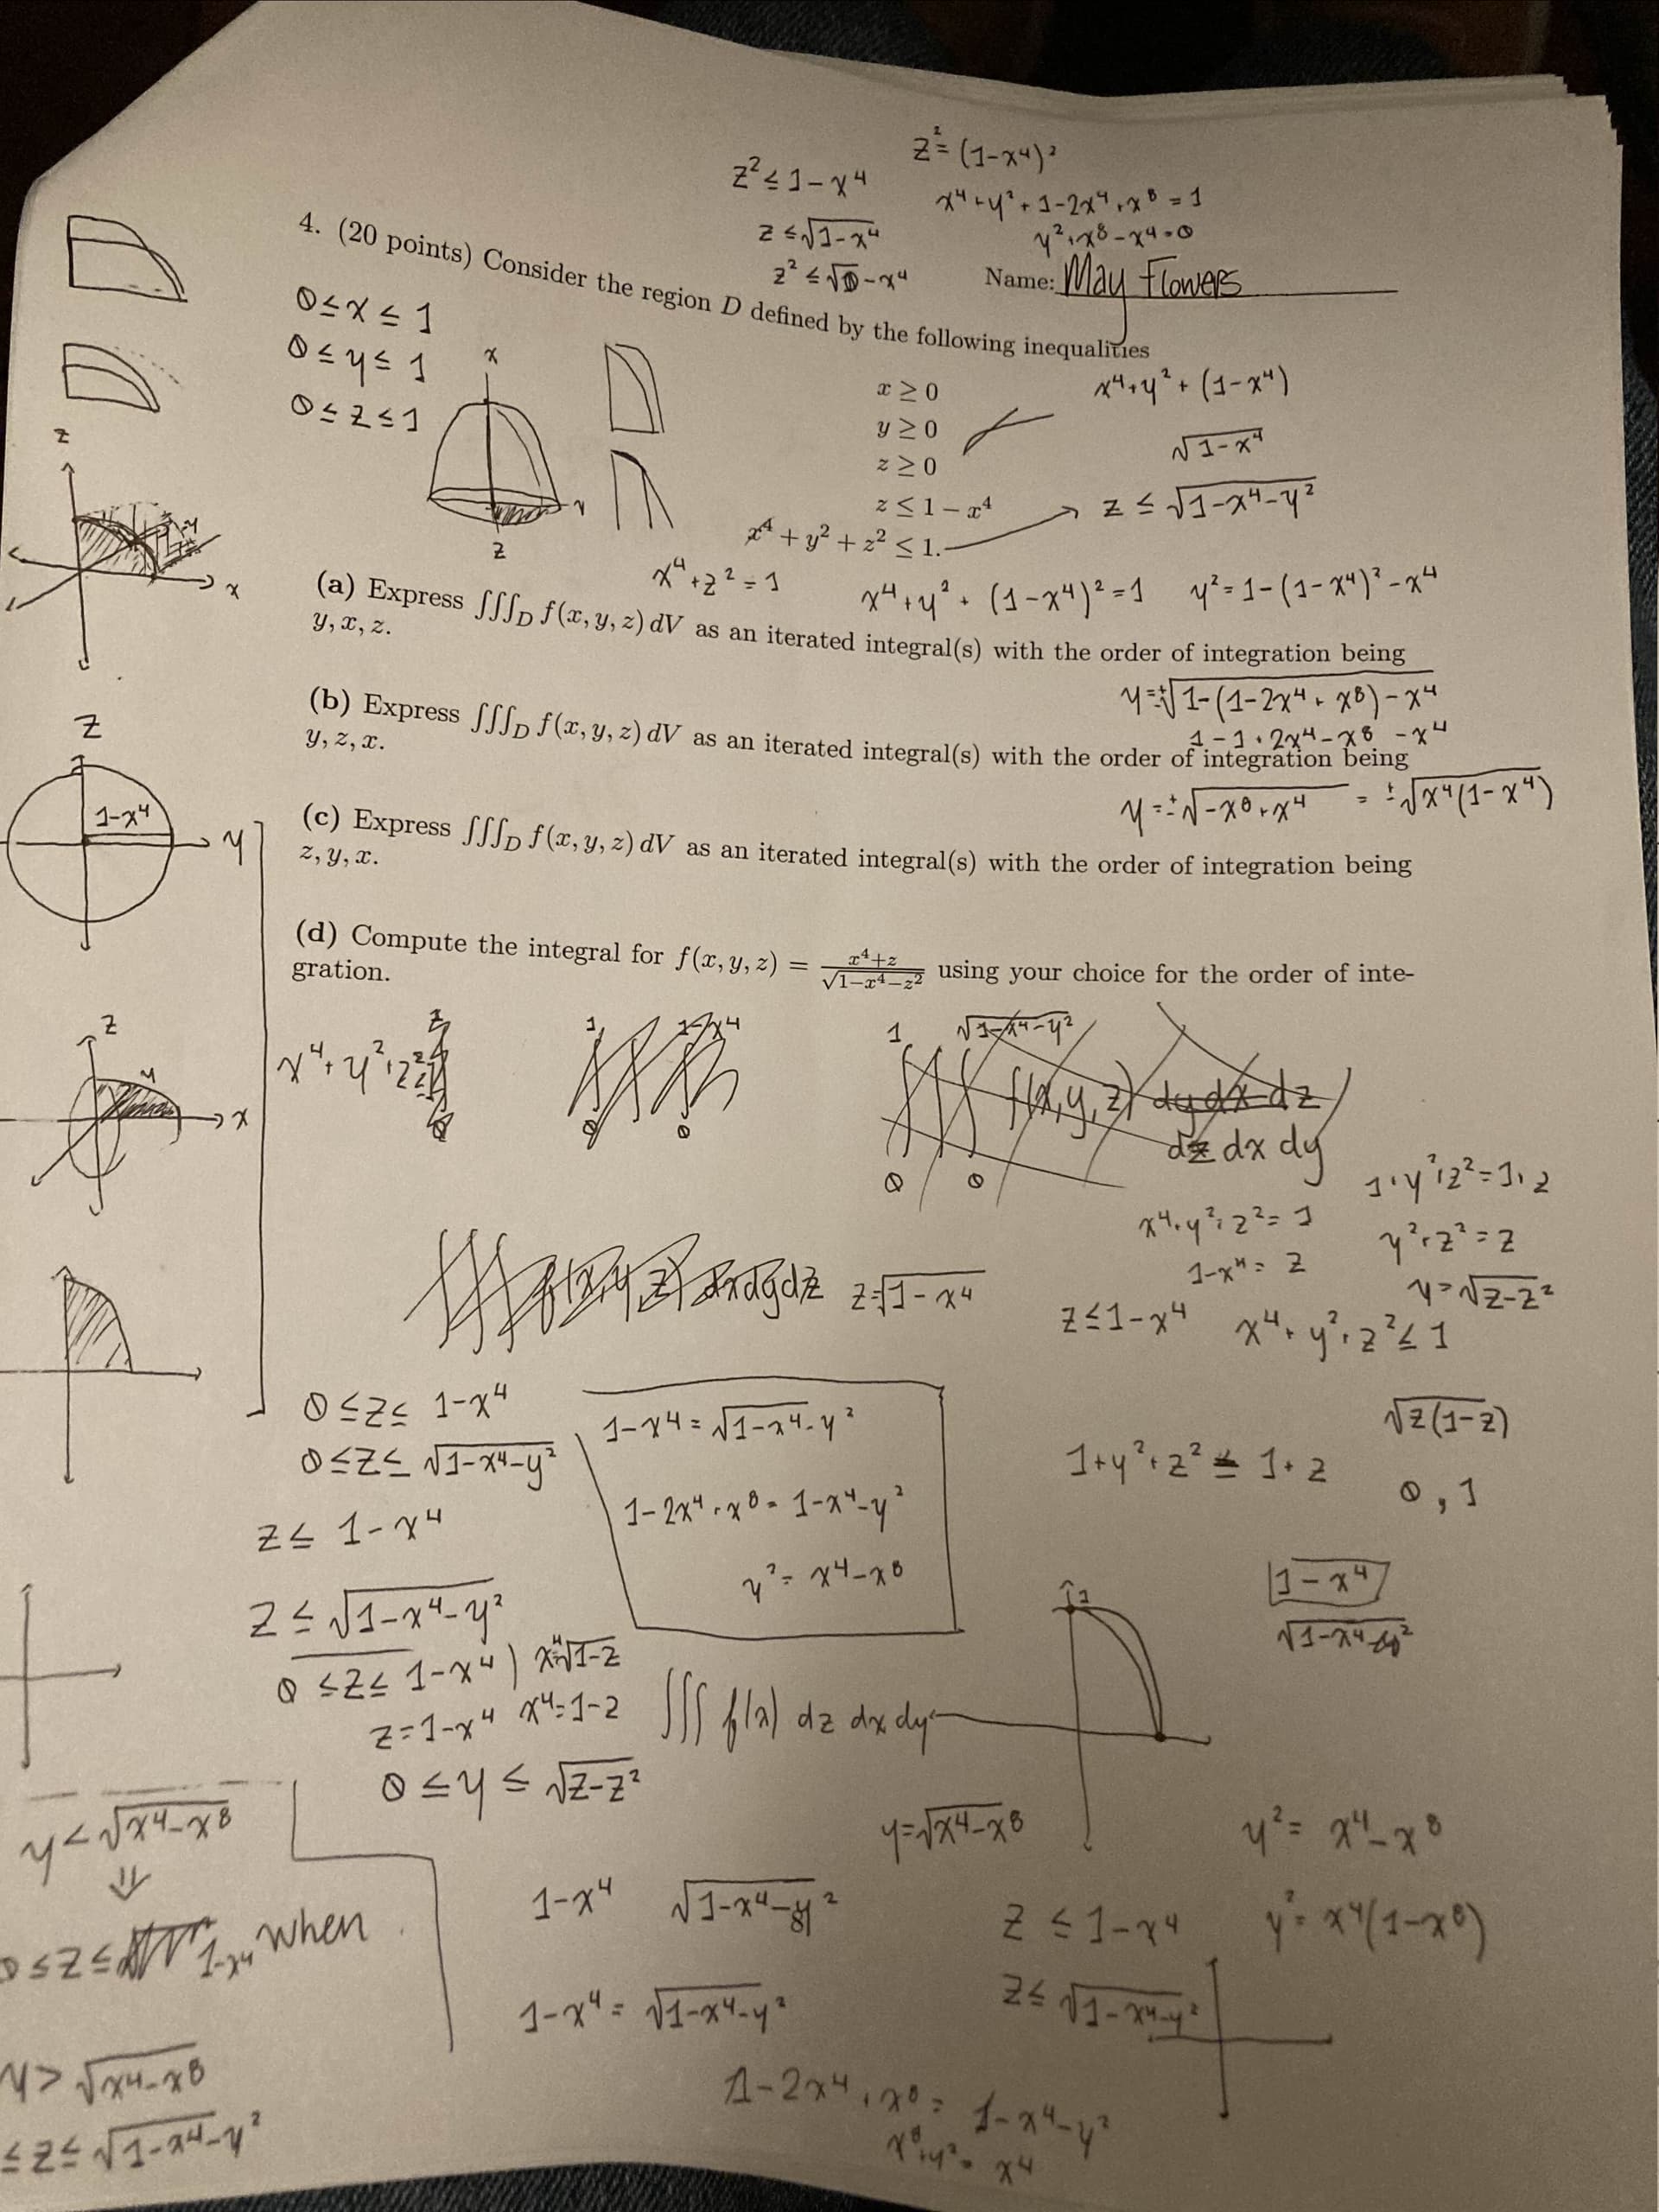 z² = (1-x⁴)²
z² ≤ 1-x⁴
x⁴+y²+1-2x⁴+x⁸ = 1
z ≤ √(1-x⁴)
y²+x⁸-x⁴=0
Name: May Flowers
4. (20 points) Consider the region D defined by the following inequalities
0≤x≤1
0≤y≤1
0≤z≤1
x
y
z
x ≥ 0
y ≥ 0
z ≥ 0
z ≤ 1 − x⁴
x⁴ + y² + z² ≤ 1.
x⁴+y²+(1-x⁴)
√(1-x⁴)
z ≤ √(1-x⁴-y²)
x⁴+z²=1
x⁴+y²+(1-x⁴)²=1
y²=1-(1-x⁴)²-x⁴
(a) Express ∭_D f(x, y, z) dV as an iterated integral(s) with the order of integration being
y, x, z.
y=±√(1-(1-2x⁴+x⁸)-x⁴)
1-1+2x⁴-x⁸-x⁴
(b) Express ∭_D f(x, y, z) dV as an iterated integral(s) with the order of integration being
y, z, x.
y=±√(-x⁸+x⁴) = ±√(x⁴(1-x⁴))
(c) Express ∭_D f(x, y, z) dV as an iterated integral(s) with the order of integration being
z, y, x.
(d) Compute the integral for f(x, y, z) = (x⁴+z)/√(1−x⁴−z²) using your choice for the order of inte-
gration.
z
y
x
z
1-x⁴
y
z
y
x
x⁴+y²+z²
1
0
1-x⁴
0
1
0
√(1-x⁴-y²)
0
f(x,y,z) dy dx dz
dz dx dy
1+y²+z²=1+z
x⁴+y²+z²=1
y²+z²=z
1-x⁴=z
y=√(z-z²)
∭ f(x,y,z) dxdydz
z=√(1-x⁴)
z≤1-x⁴
x⁴+y²+z²≤1
0≤z≤ 1-x⁴
0≤z≤ √(1-x⁴-y²)
z≤ 1-x⁴
1-x⁴=√(1-x⁴-y²)
1-2x⁴+x⁸=1-x⁴-y²
y²=x⁴-x⁸
√(z(1-z))
1+y²+z² ≤ 1+z
0, 1
z ≤ √(1-x⁴-y²)
0≤z≤1-x⁴
x=⁴√(1-z)
z=1-x⁴
x⁴=1-z
∭ f(x) dz dx dy
0≤y≤√(z-z²)
1-x⁴
y<√(x⁴-x⁸)
⇓
0≤z≤ 1-x⁴ when
y>√(x⁴-x⁸)
≤z≤√(1-x⁴-y²)
y=√(x⁴-x⁸)
y²= x⁴-x⁸
1-x⁴
√(1-x⁴-y²)
z ≤ 1-x⁴
y²= x⁴(1-x⁸)
1-x⁴= √(1-x⁴-y²)
z≤ √(1-x⁴-y²)
1-2x⁴+x⁸= 1-x⁴-y²
x⁸+y²= x⁴